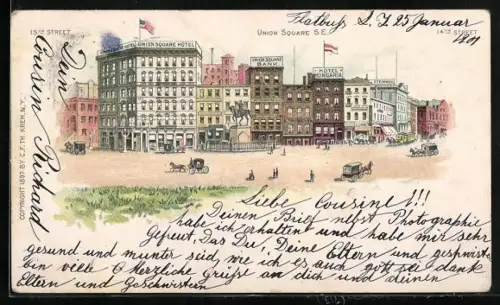 Flatbush L. I. 25 Januar
1901
15TH STREET.
UNION SQUARE S.E.
14TH STREET
UNION SQUARE HOTEL
UNION SQUARE BANK
HOTEL HUNGARIA
STEINWAY
COPYRIGHT 1897 BY C. F. TH. KREH, N.Y.
Liebe Cousine!!!
Deinen Brief nebst Photographie
habe ich erhalten und habe mir sehr
gefreut, Das Du, Deine Eltern und geschwister
gesund und munter seid, wie ich es auch gott sei dank
bin viele herzliche Grüße an dich und deinen
Eltern und Geschwistern
Dein
Cousin Richard